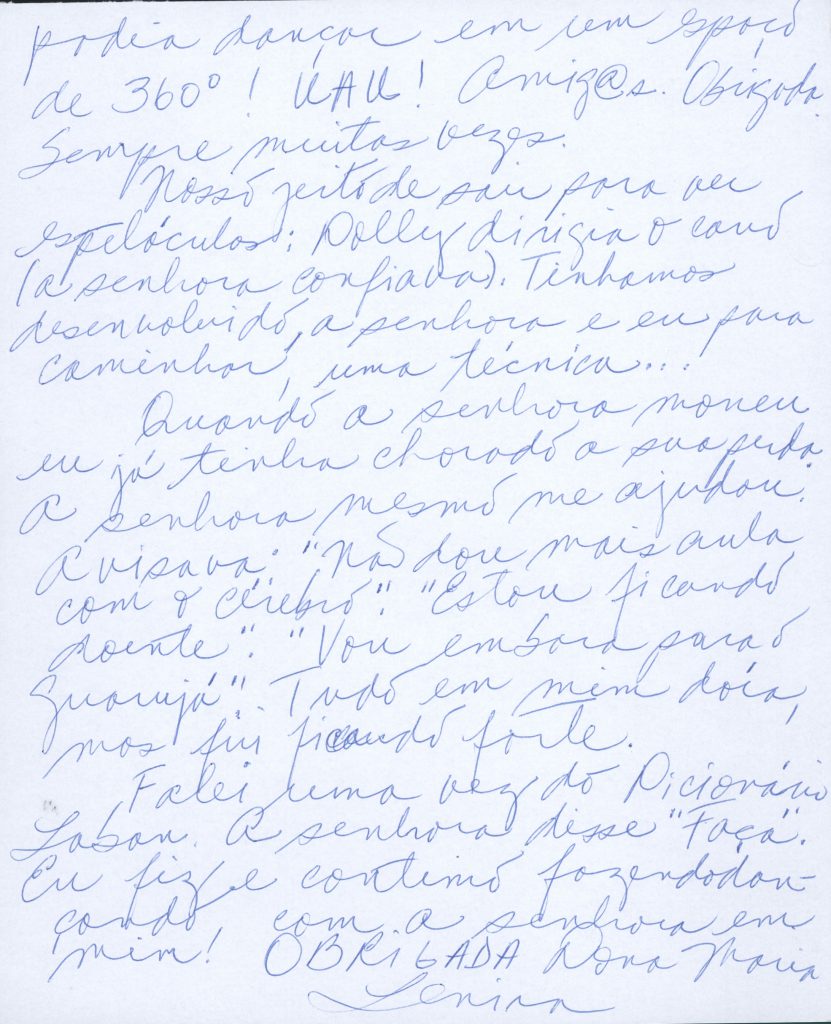 podia dançar em um espaço
de 360º! UAU! Amig@s. Obrigada
Sempre muitas vezes.
Nosso jeito de sair para ver
espetáculos: Dolly dirigia o carro
(a senhora confiava). Tínhamos
desenvolvido, a senhora e eu para
caminhar, uma técnica...
Quando a senhora morreu
eu já tinha chorado a sua perda.
A senhora mesmo me ajudou.
Avisava: "Não dou mais aula
com o cérebro". "Estou ficando
doente". "Vou embora para o
Guarujá". Tudo em mim doía,
mas fui ficando forte.
Falei uma vez do Dicionário
Laban. A senhora disse "Faça".
Eu fiz e continuo fazendodan-
çando, com a senhora em
mim! OBRIGADA Dona Maria
Lenira